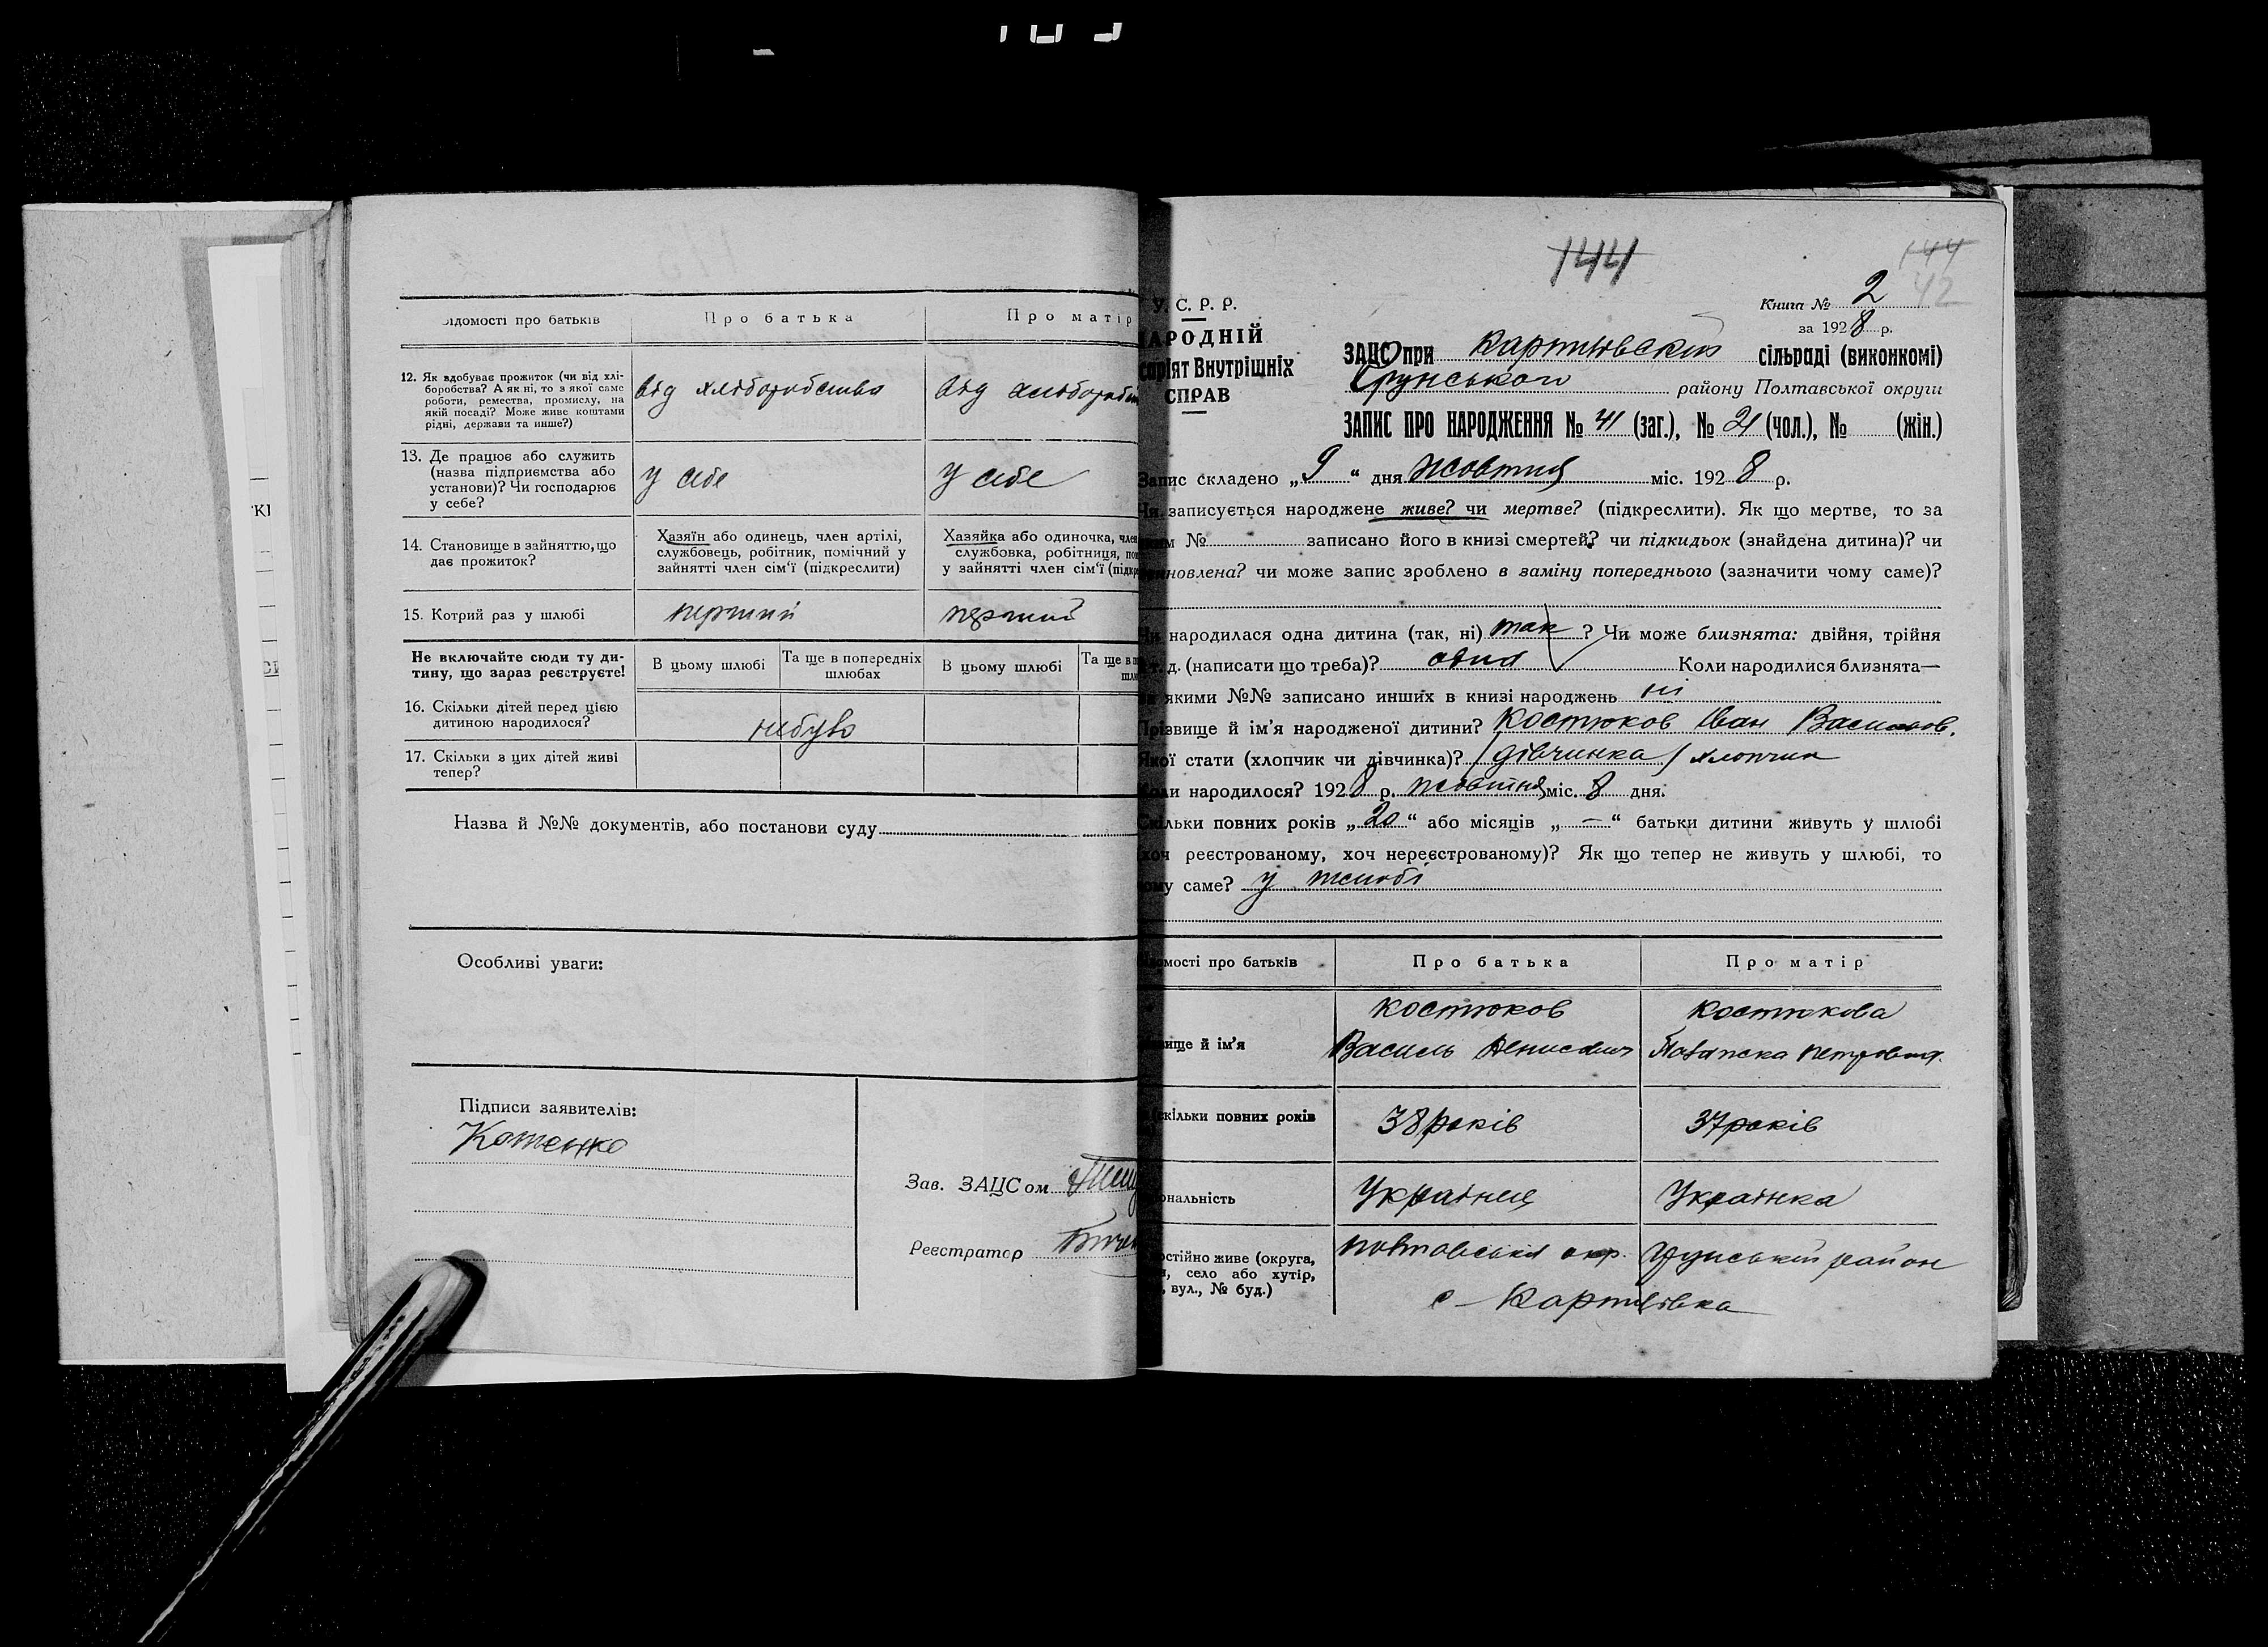 ʼКІ
ідомості про батьків
Про батька
Про матір
12. Як здобуває прожиток (чи від хлі-
боробства? А як ні, то з якої саме
роботи, ремества, промислу, на
якій посаді? Може живе коштами
рідні, держави та инше?)
від хліборобства
від хлібороб
13. Де працює або служить
(назва підприємства або
установи)? Чи господарює
у себе?
у себе
у себе
14. Становище в зайняттю, що
дає прожиток?
Хазяїн або одинець, член артілі,
службовець, робітник, помічний у
зайнятті член сім'ї (підкреслити)
Хазяйка або одиночка, член
службовка, робітниця, по
у зайнятті член сім'ї (підкр
15. Котрий раз у шлюбі
перший
перший
Не включайте сюди ту ди-
тину, що зараз реєструєте!
В цьому шлюбі
Та ще в попередніх
шлюбах
В цьому шлюбі
Та ще в п
шлю
16. Скільки дітей перед цією
дитиною народилося?
небуло
17. Скільки з цих дітей живі
тепер?
Назва й №№ документів, або постанови суду
Особливі уваги:
Підписи заявителів:
Котенко
Зав. ЗАЦСом
Реєстратор
144
144
42
У. С. Р. Р.
АРОДНІЙ
ріят Внутрішніх
СПРАВ
Книга № 2
за 1928 р.
ЗАЦС при сільраді (виконкомі)
Грунського району Полтавської округи
ЗАПИС ПРО НАРОДЖЕННЯ № 41 (заг.), № 21 (чол.), № (жін.)
Запис складено „9“ дня жовтня міс. 1928 р.
Чи записується народжене живе? чи мертве? (підкреслити). Як що мертве, то за
№ записано його в книзі смертей? чи підкидьок (знайдена дитина)? чи
новлена? чи може запис зроблено в заміну попереднього (зазначити чому саме)?
народилася одна дитина (так, ні) так ? Чи може близнята: двійня, трійня
т. д. (написати що треба)? одна Коли народилися близнята—
якими №№ записано инших в книзі народжень ні
Прізвище й ім'я народженої дитини? Костюков Іван Васильов.
Якої стати (хлопчик чи дівчинка)? (дівчинка) хлопчик
Коли народилося? 1928 р. жовтня міс. 8 дня.
Скільки повних років „20“ або місяців „—“ батьки дитини живуть у шлюбі
хоч реєстрованому, хоч нереєстрованому)? Як що тепер не живуть у шлюбі, то
чому саме? у шлюбі
мості про батьків
Про батька
Про матір
вище й ім'я
Костюков
Василь Денисович
Костюкова
Петровна
скільки повних років
38 років
37 років
ональність
Українец
Українка
остійно живе (округа,
н, село або хутір,
, вул., № буд.)
Полтавська окр. Грунський район
с – Картилівка